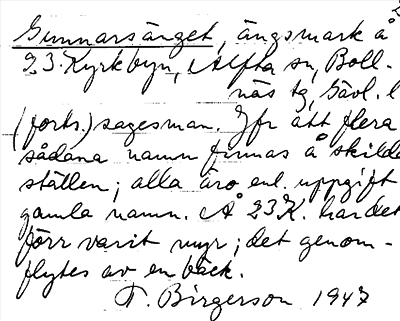 2
Gunnarsänget, ängsmark å
23. Kyrkbyn, Alfta sn, Boll-
näs tg, Gävl. l
(forts.) sagesman. Jfr att flera
sådana namn finnas å skilda
ställen; alla äro enl. uppgift
gamla namn. Å 23 K. har det
förr varit myr; det genom-
flytes av en bäck.
T. Birgerson 1947